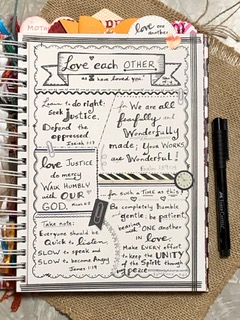 MOTH
love one
another
love each OTHER
as I have loved you.
Learn to do right;
Seek justice.
Defend the
oppressed.
Isaiah 1:17
for We are all
fearfully
and
Wonderfully
made; Your WORKS
are Wonderful!
love JUSTICE
do mercy
WALK HUMBLY
with OUR
GOD.
for such a Time as this
Be completely humble
gentle; be patient,
bearing
ONE another
in love.
Make EVERY effort
to keep the UNITY
of the Spirit through
peace
Take note:
Everyone should be
Quick to listen,
SLOW to speak and
SLOW to become Angry
James 1:19